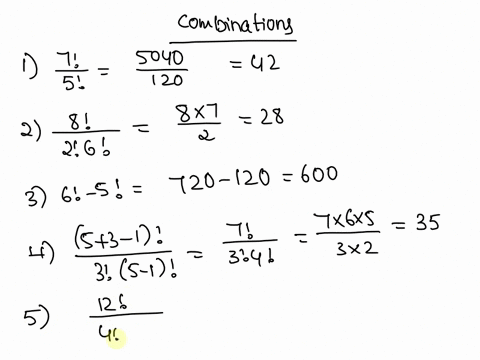 Combinations
1) 7!/5! = 5040/120 = 42
2) 8!/2!6! = 8×7/2 = 28
3) 6!-5! = 720-120 = 600
4) (5+3-1)!/3!(5-1)! = 7!/3!4! = 7×6×5/3×2 = 35
5) 12!/4!